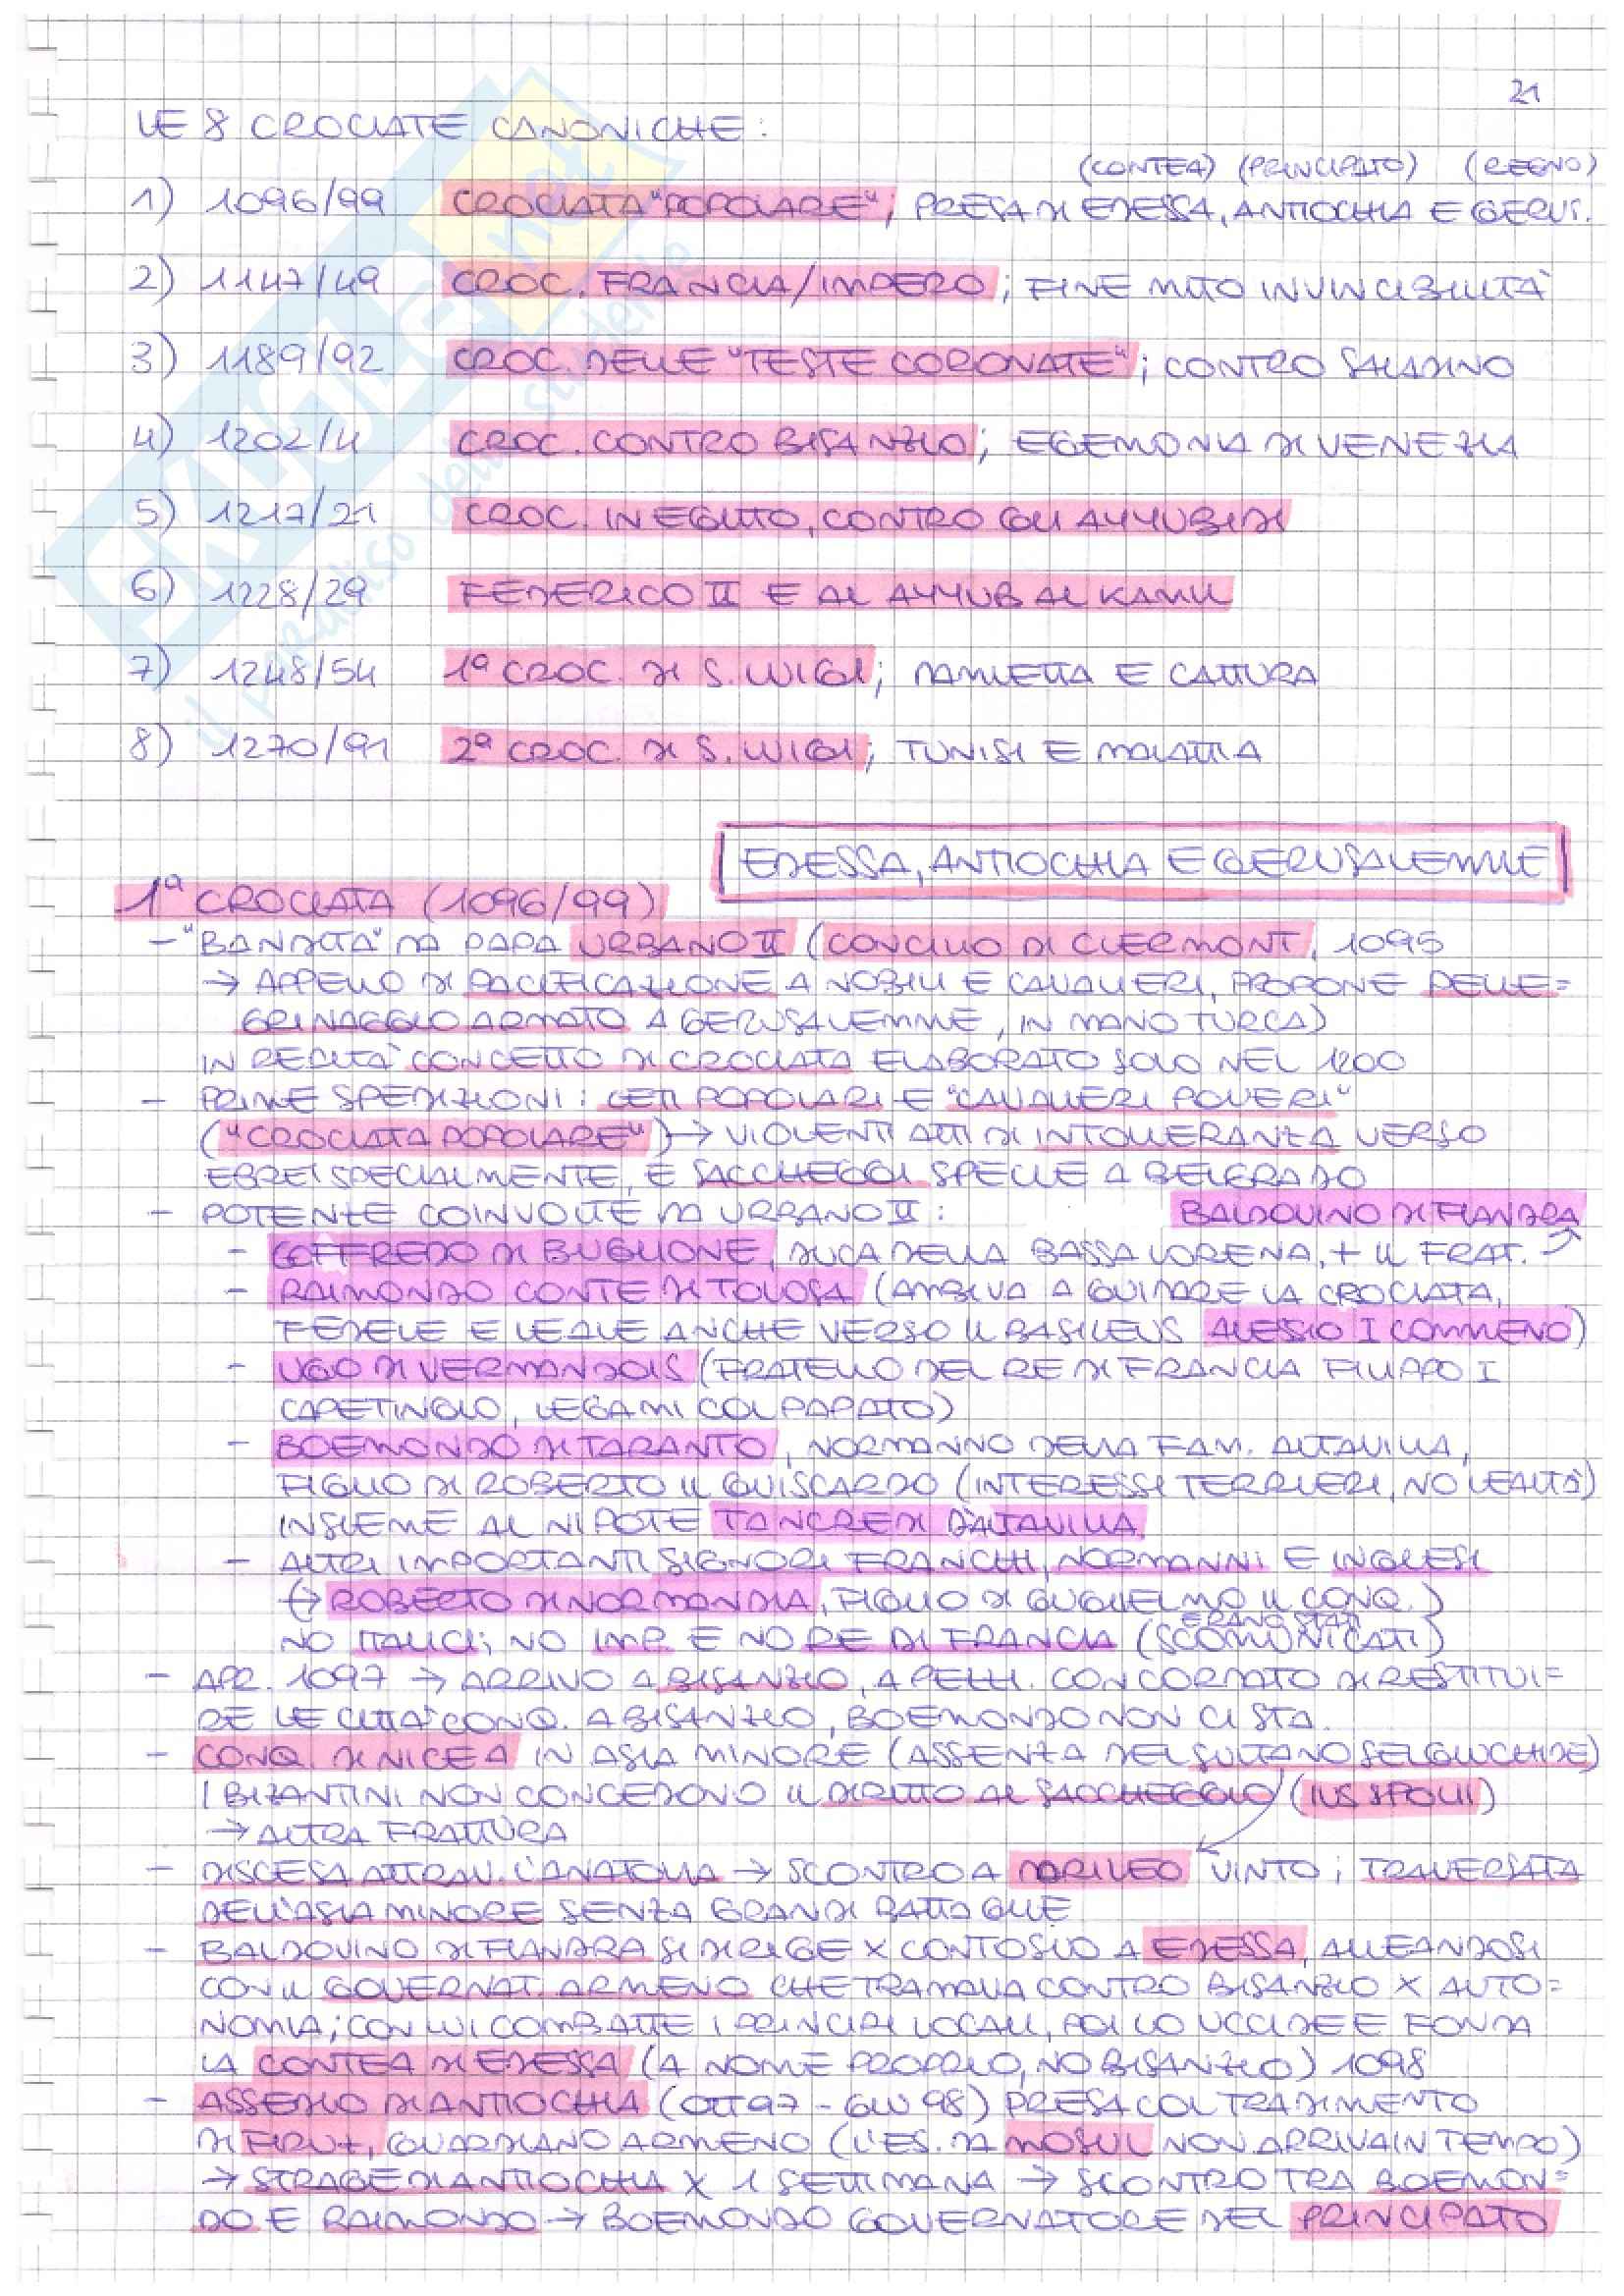 21
LE 8 CROCIATE CANONICHE:
(CONTEA) (PRINCIPATO) (REGNO)
1) 1096/99 CROCIATA "POPOLARE"; PRESA DI EDESSA, ANTIOCHIA E GERUS.
2) 1147/49 CROC. FRANCIA/IMPERO; FINE MITO INVINCIBILITÀ
3) 1189/92 CROC. DELLE "TESTE CORONATE"; CONTRO SALADINO
4) 1202/4 CROC. CONTRO BISANZIO; EGEMONIA DI VENEZIA
5) 1217/21 CROC. IN EGITTO, CONTRO GLI AYYUBIDI
6) 1228/29 FEDERICO II E AL AYYUB AL KAMIL
7) 1248/54 1ª CROC. DI S. LUIGI; DAMIETTA E CATTURA
8) 1270/91 2ª CROC. DI S. LUIGI; TUNISI E MALATTIA
EDESSA, ANTIOCHIA E GERUSALEMME
1ª CROCIATA (1096/99)
- "BANDITA" DA PAPA URBANO II (CONCILIO DI CLERMONT, 1095
→ APPELLO DI PACIFICAZIONE A NOBILI E CAVALIERI, PROPONE PELLE=
GRINAGGIO ARMATO A GERUSALEMME, IN MANO TURCA)
IN REALTÀ CONCETTO DI CROCIATA ELABORATO SOLO NEL 1200
- PRIME SPEDIZIONI: CETI POPOLARI E "CAVALIERI POVERI"
("CROCIATA POPOLARE") → VIOLENTI ATTI DI INTOLLERANZA VERSO
EBREI SPECIALMENTE, E SACCHEGGI SPECIE A BELGRADO
- POTENZE COINVOLTE DA URBANO II: BALDOVINO DI FIANDRA
- GOFFREDO DI BUGLIONE, DUCA DELLA BASSA LORENA, + IL FRAT.
- RAIMONDO CONTE DI TOLOSA (AMBIVA A GUIDARE LA CROCIATA,
FEDELE E LEALE ANCHE VERSO IL BASILEUS ALESSIO I COMMENO)
- UGO DI VERMANDOIS (FRATELLO DEL RE DI FRANCIA FILIPPO I
CAPETINGIO, LEGAMI COL PAPATO)
- BOEMONDO DI TARANTO, NORMANNO DELLA FAM. ALTAVILLA,
FIGLIO DI ROBERTO IL GUISCARDO (INTERESSI TERRIERI, NO LEALTÀ)
INSIEME AL NIPOTE TANCREDI D'ALTAVILLA
- ALTRI IMPORTANTI SIGNORI FRANCHI, NORMANNI E INGLESI
(→ ROBERTO DI NORMANDIA, FIGLIO DI GUGLIELMO IL CONQ.)
ERANO STATI
NO ITALICI; NO IMP. E NO RE DI FRANCIA (SCOMUNICATI)
- APR. 1097 → ARRIVO A BISANZIO, A PELLI. CONCORDATO DI RESTITUI=
RE LE CITTÀ CONQ. A BISANZIO, BOEMONDO NON CI STA.
- CONQ. DI NICEA IN ASIA MINORE (ASSENZA DEL SULTANO SELGIUCHIDE)
I BIZANTINI NON CONCEDONO IL DIRITTO AL SACCHEGGIO (IUS SPOLII)
→ ALTRA FRATTURA
- DISCESA ATTRAV. L'ANATOLIA → SCONTRO A DORILEO VINTO; TRAVERSATA
DELL'ASIA MINORE SENZA GRANDI BATTAGLIE
- BALDOVINO DI FIANDRA SI DIRIGE X CONTO SUO A EDESSA, ALLEANDOSI
CON IL GOVERNAT. ARMENO CHE TRAMAVA CONTRO BISANZIO X AUTO=
NOMIA; CON LUI COMBATTE I PRINCIPI LOCALI, POI LO UCCIDE E FONDA
LA CONTEA DI EDESSA (A NOME PROPRIO, NO BISANZIO) 1098
- ASSEDIO DI ANTIOCHIA (OTT 97 - GIU 98) PRESA COL TRADIMENTO
DI FIRUZ, GUARDIANO ARMENO (L'ES. DA MOSUL NON ARRIVA IN TEMPO)
→ STRAGE DI ANTIOCHIA X 1 SETTIMANA → SCONTRO TRA BOEMON=
DO E RAIMONDO → BOEMONDO GOVERNATORE DEL PRINCIPATO